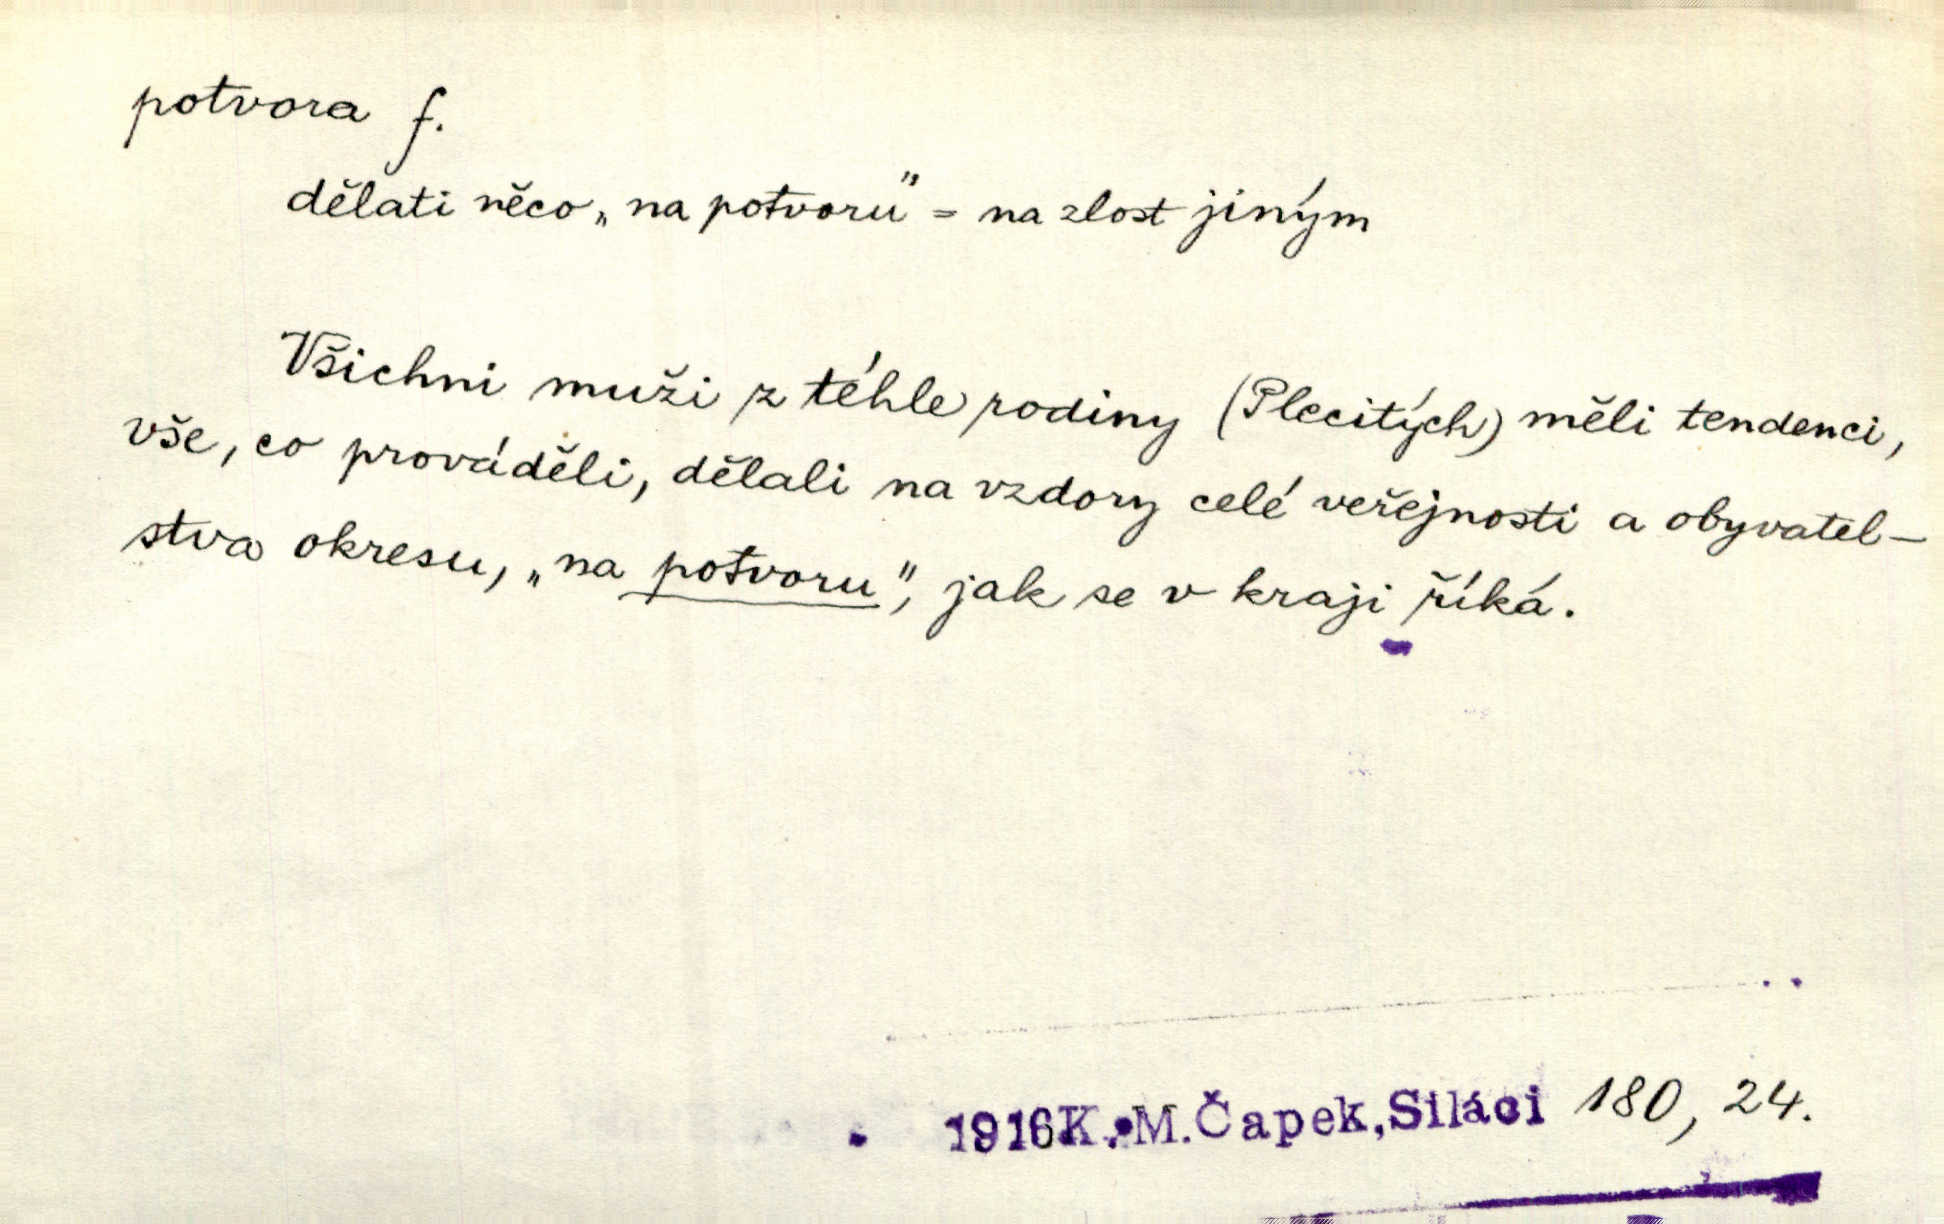 potvora f.
dělati něco „na potvoru" = na zlost jiným
Všichni muži z téhle rodiny (Plecitých) měli tendenci,
vše, co prováděli, dělali na vzdory celé veřejnosti a obyvatel-
stva okresu, „na potvoru", jak se v kraji říká.
1916 K. M. Čapek, Siláci 180, 24.